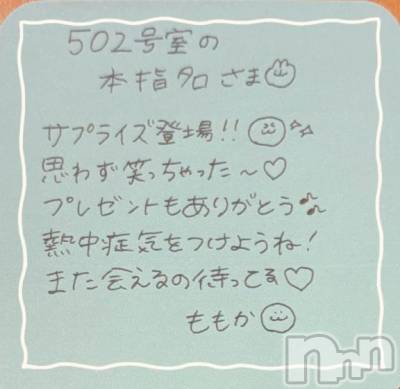 502号室の
本指名さま
サプライズ登場!!
思わず笑っちゃった〜♡
プレゼントもありがとう♪
熱中症気をつけようね!
また会えるの待ってる♡
ももか
nnn